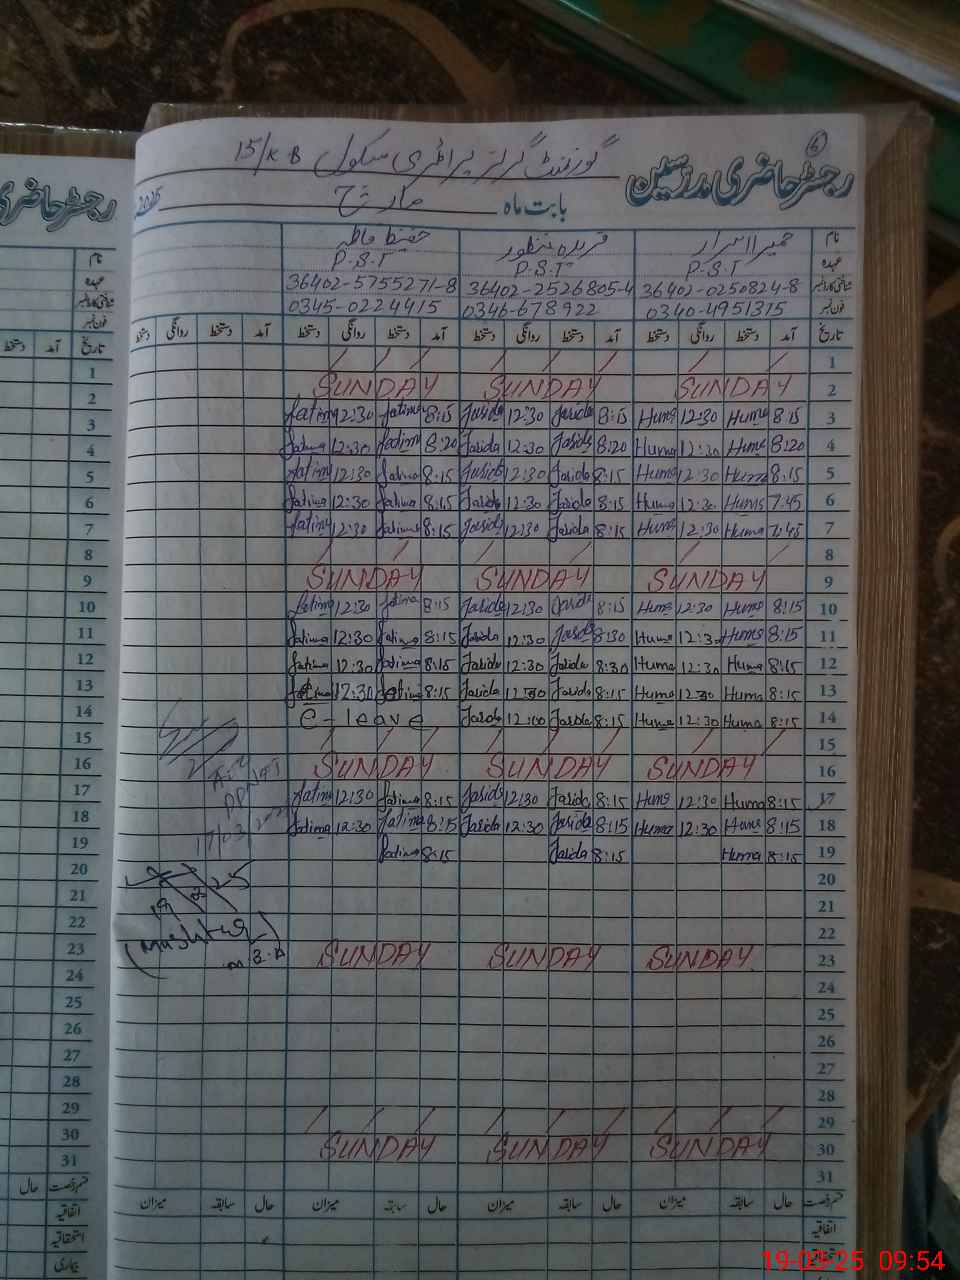 6
گورنمنٹ گرلز پرائمری سکول 15/KB
رجسٹر حاضری مدرسین
بابت ماہ مارچ 2025
نام حمیرا اسرار فریدہ منظور حفیظ فاطمہ
عہدہ P.S.T P.S.T P.S.T
شناختی کارڈ نمبر 36402-0250824-8 36402-2526805-4 36402-5755271-8
فون نمبر 0340-4951315 0346-678922 0345-0224415
تاریخ آمد دستخط روانگی دستخط آمد دستخط روانگی دستخط آمد دستخط روانگی دستخط آمد دستخط روانگی دستخط
1
2 SUNDAY SUNDAY SUNDAY
3 8:15 Huma 12:30 Huma 8:15 Farida 12:30 Farida 8:15 Fatima 12:30 Fatima
4 8:20 Huma 12:30 Huma 8:20 Farida 12:30 Farida 8:20 Fatima 12:30 Fatima
5 8:15 Huma 12:30 Huma 8:15 Farida 12:30 Farida 8:15 Fatima 12:30 Fatima
6 7:45 Huma 12:30 Huma 8:15 Farida 12:30 Farida 8:15 Fatima 12:30 Fatima
7 7:45 Huma 12:30 Huma 8:15 Farida 12:30 Farida 8:15 Fatima 12:30 Fatima
8
9 SUNDAY SUNDAY SUNDAY
10 8:15 Huma 12:30 Huma 8:15 Farida 12:30 Farida 8:15 Fatima 12:30 Fatima
11 8:15 Huma 12:30 Huma 8:30 Farida 12:30 Farida 8:15 Fatima 12:30 Fatima
12 8:15 Huma 12:30 Huma 8:30 Farida 12:30 Farida 8:15 Fatima 12:30 Fatima
13 8:15 Huma 12:30 Huma 8:15 Farida 12:30 Farida 8:15 Fatima 12:30 Fatima
14 8:15 Huma 12:30 Huma 8:15 Farida 12:00 Farida C-leave
15
16 SUNDAY SUNDAY SUNDAY
17 8:15 Huma 12:30 Huma 8:15 Farida 12:30 Farida 8:15 Fatima 12:30 Fatima
18 8:15 Huma 12:30 Huma 8:15 Farida 12:30 Farida 8:15 Fatima 12:30 Fatima
17/03/
19 8:15 Huma 8:15 Farida 8:15 Fatima
20
21
19 25
22
23 SUNDAY SUNDAY SUNDAY
24
25
26
27
28
29
30 SUNDAY SUNDAY SUNDAY
31
قسم رخصت حال سابقہ میزان حال سابقہ میزان حال سابقہ میزان حال سابقہ میزان
اتفاقیہ
استحقاقیہ
رجسٹر حاضری
نام
عہدہ
شناختی کارڈ نمبر
فون نمبر
تاریخ آمد دستخط
1
2
3
4
5
6
7
8
9
10
11
12
13
14
15
16
17
18
19
20
21
22
23
24
25
26
27
28
29
30
31
قسم رخصت حال
اتفاقیہ
استحقاقیہ
بیماری
19-03-25 09:54